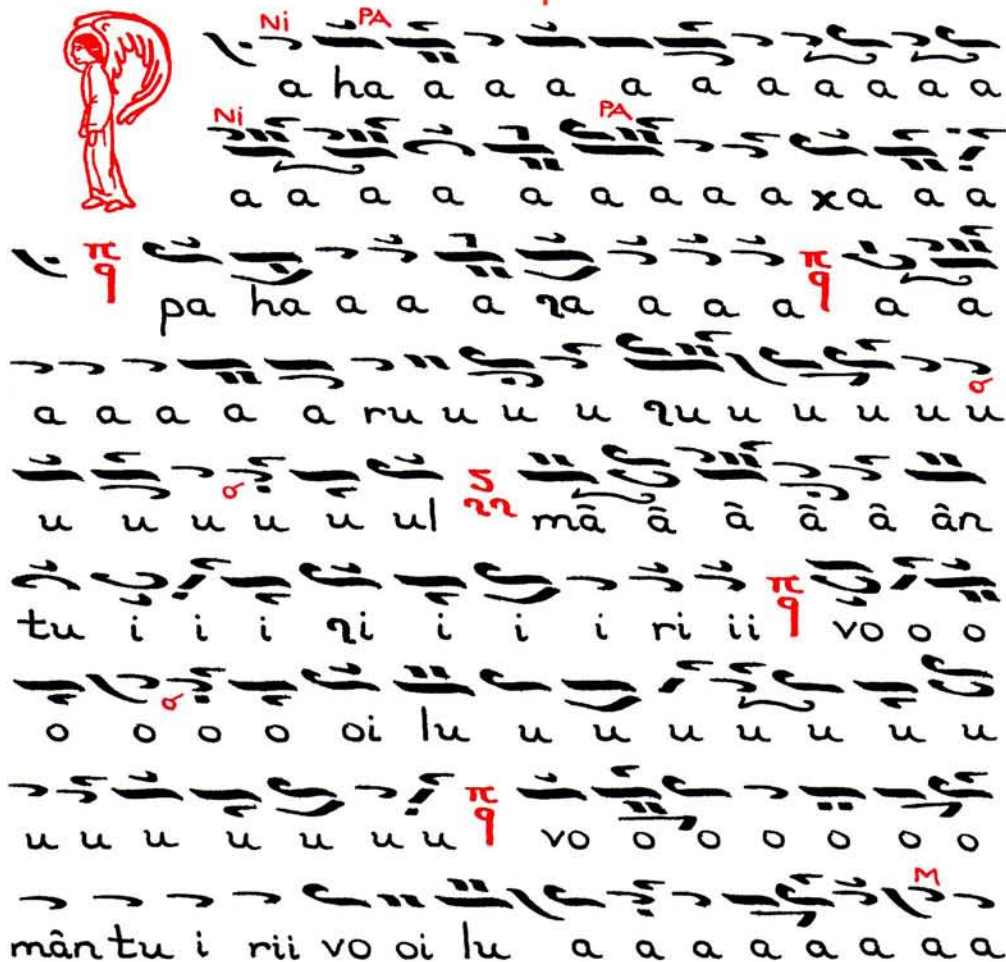 Ni PA
a ha a a a a a a a a a a a
Ni PA
a a a a a a a a a xa a a
π q pa ha a a a ꝛa a a a π q a a
a a a a a ru u u u ꝛu u u u u u
u u u u u ul mâ â â â â ân
tu i i i ꝛi i i i ri ii π q vo o o
o o o o oi lu u u u u u u u
u u u u u u u π q vo o o o o o o
M
mân tu i rii vo oi lu a a a a a a a a